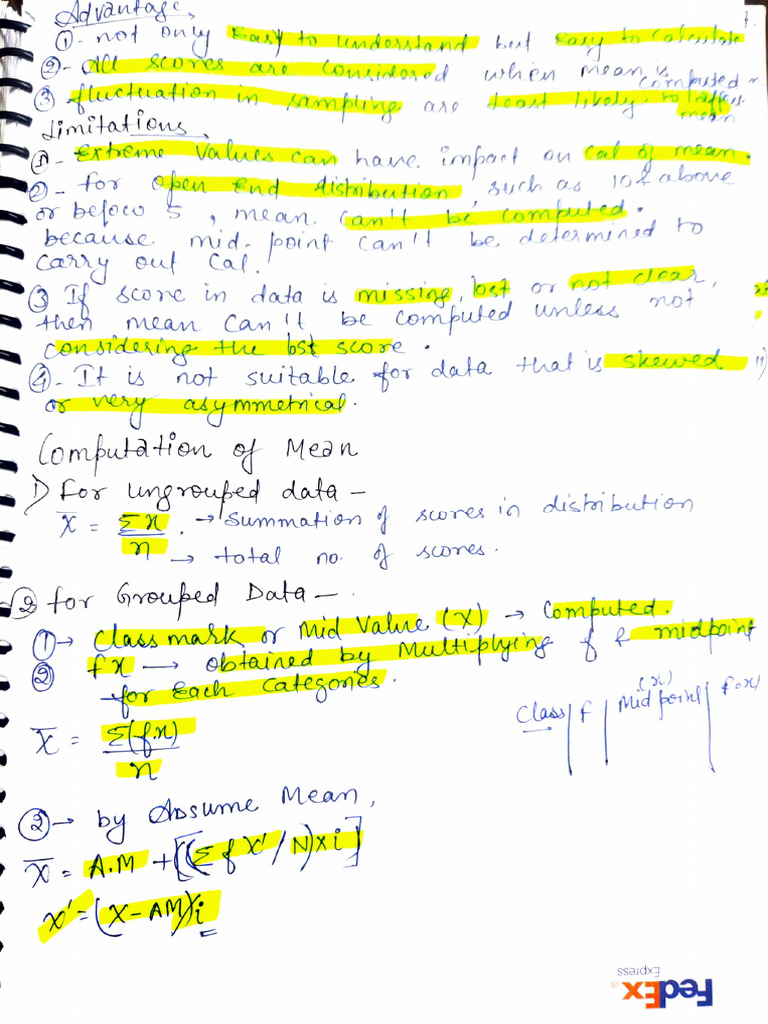 Advantage,
① - not only Easy to understand but Easy to Calculate
② - All scores are considered when mean is computed
③ fluctuation in sampling are least likely to affect mean.
Limitations,
① - Extreme Values can have impact on Cal of mean.
② - for open end distribution, such as 10 & above
or below 5, mean can't be computed.
because mid-point can't be determined to
carry out Cal.
③ If score in data is missing, lost or not clear,
then mean can't be computed unless not
considering the lost score.
④ - It is not suitable for data that is skewed
or very asymmetrical.
Computation of Mean
1) For ungrouped data -
x̄ = Σx / n → Summation of scores in distribution
→ total no. of scores.
√2 for Grouped Data -
① → Class mark or Mid Value (x) → Computed.
② fx → obtained by Multiplying f & midpoint
for Each Categories.
Class | f | Mid point (x) | f.x
X̄ = Σ(f.x) / n
② → by Assume Mean,
X̄ = A.M + [((Σfx'/N)×i]
x' = (X - AM)/i
FedEx
Express